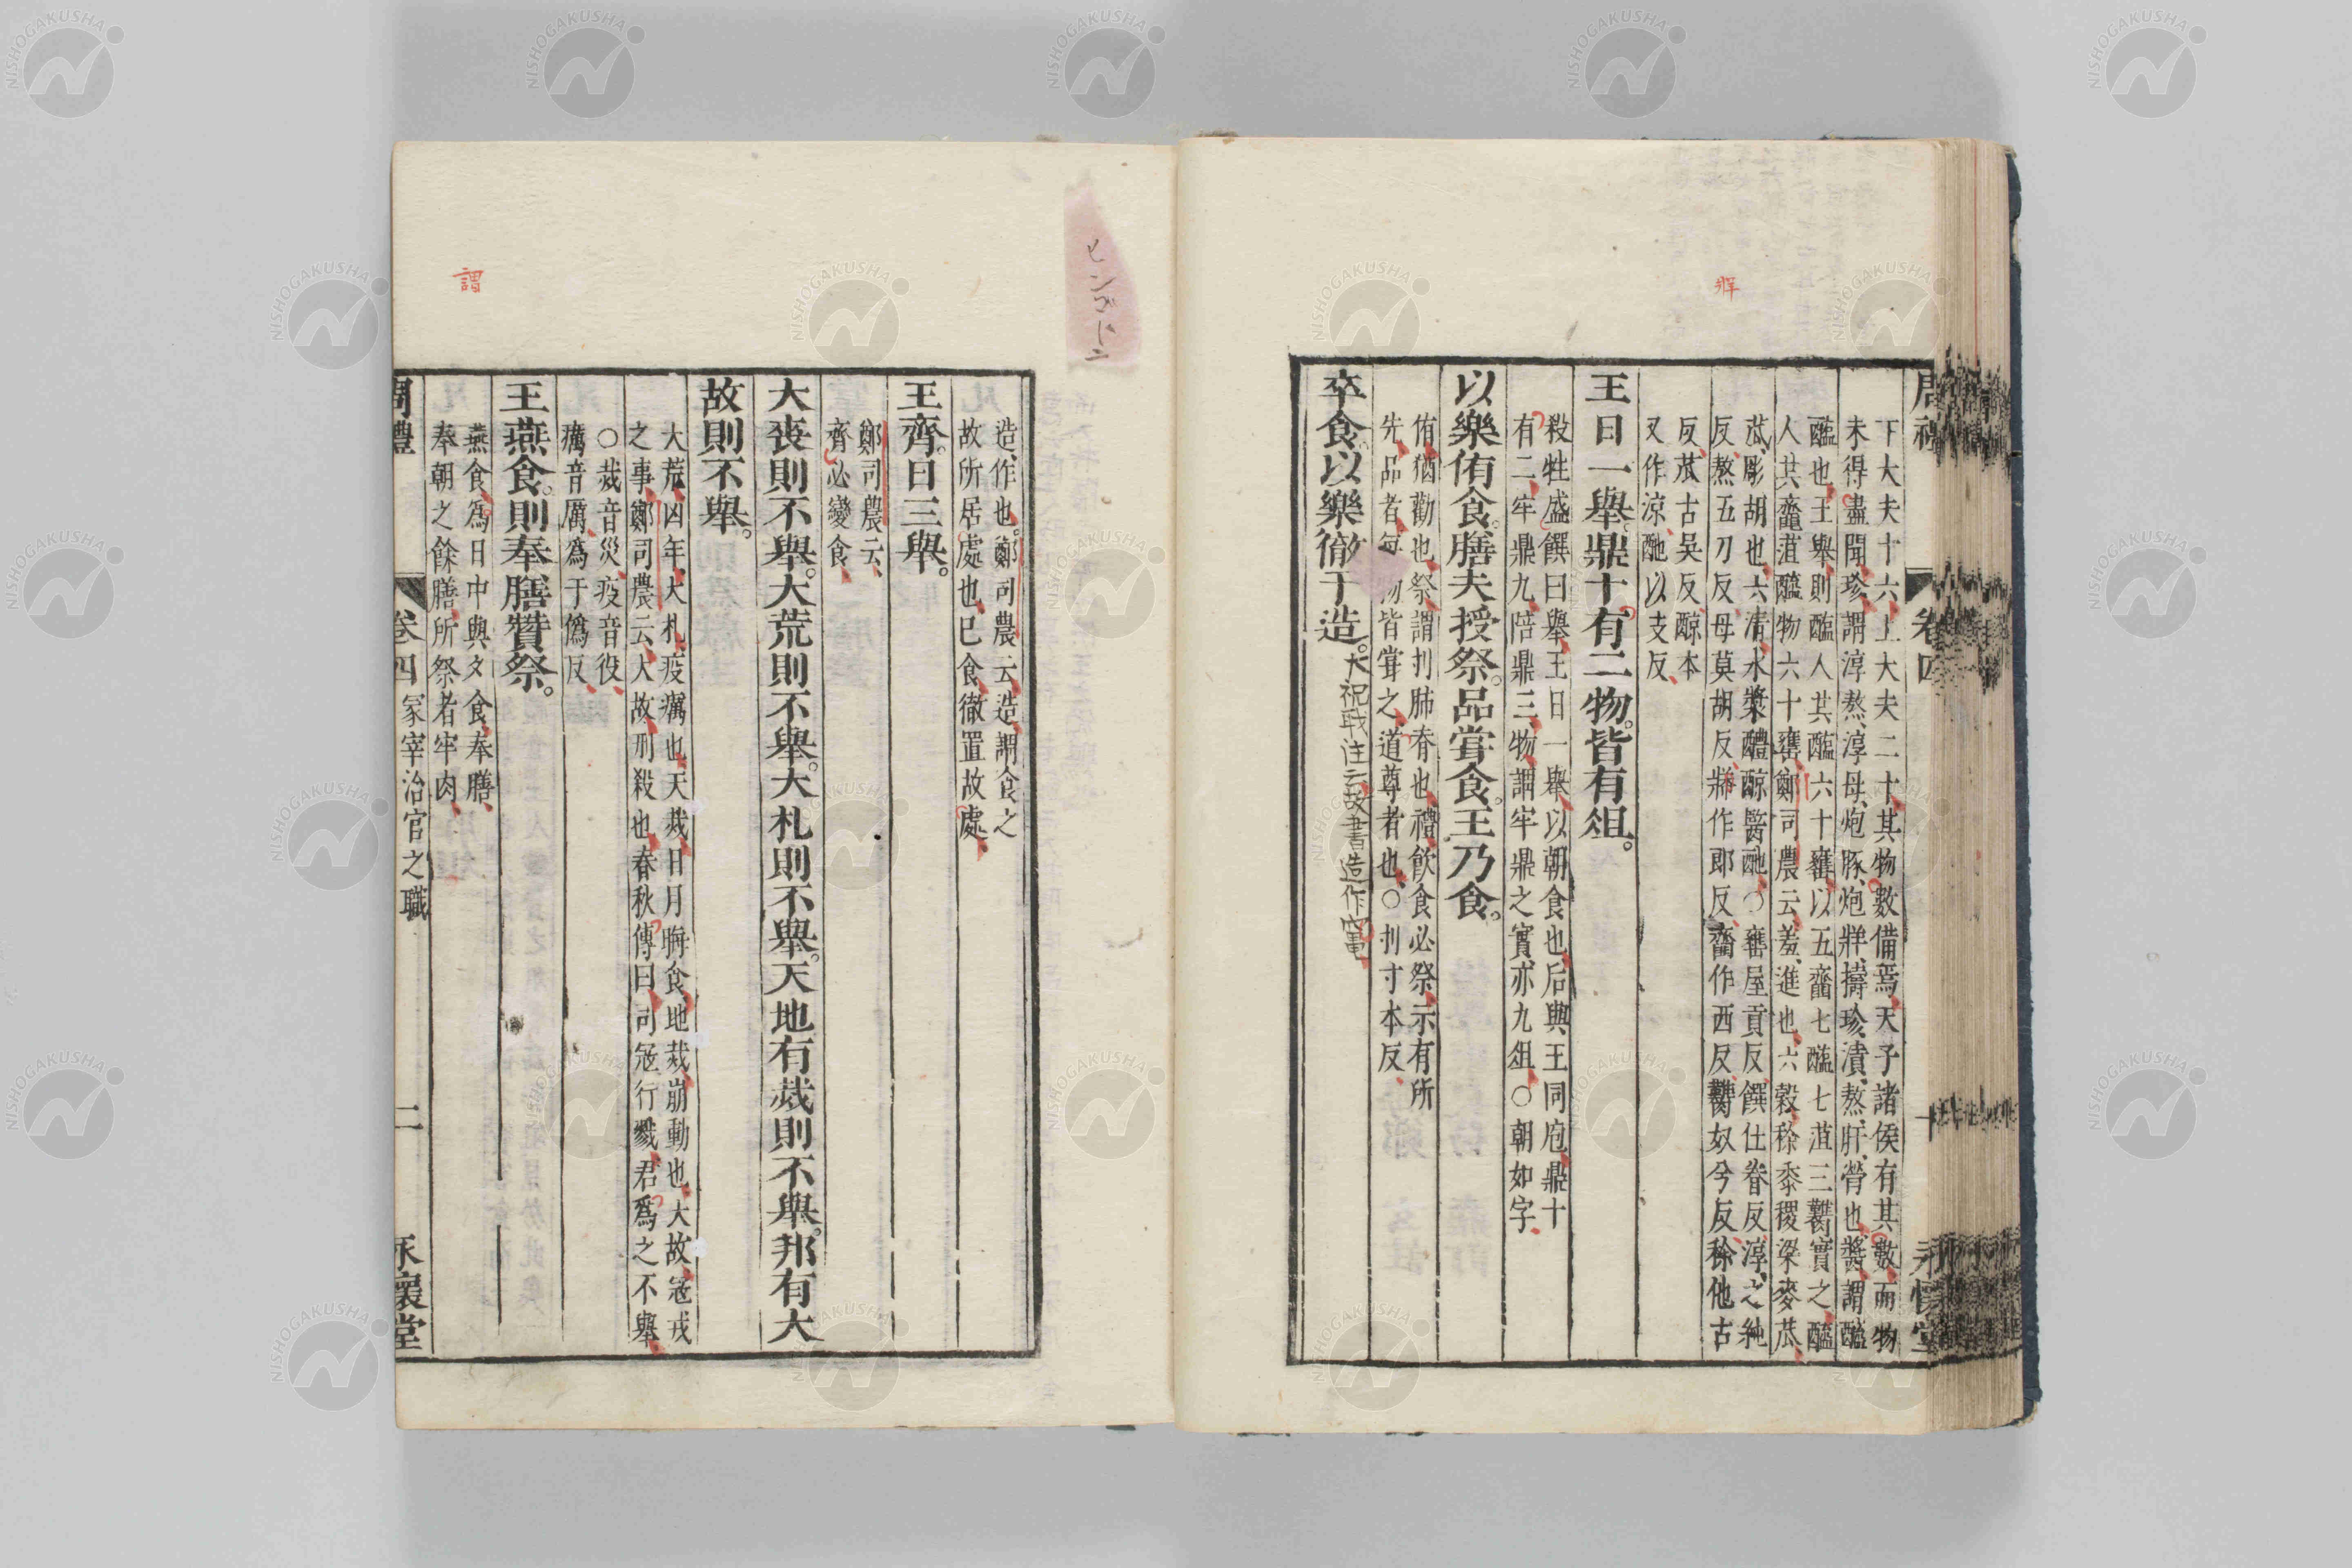 周禮
卷四
十
永懷堂
下大夫十六上大夫二十其物數備焉天子諸侯有其數而物
未得盡聞珍謂淳熬淳母炮豚炮牂擣珍漬熬肝膋也醬謂醯
醢也王舉則醢人共醢六十罋以五齏七醢七菹三臡實之醯
人共齏菹醯物六十罋鄭司農云羞進也六穀稌黍稷粱麥苽
苽彫胡也六清水漿醴䣼醫酏○罋屋貢反饌仕眷反淳之純
反熬五刀反母莫胡反牂作郎反齏作西反臡奴兮反稌他古
反苽古吴反䣼本
又作涼酏以支反
王日一舉。鼎十有二物。皆有俎。
殺牲盛饌曰舉王日一舉以朝食也后與王同庖鼎十
有二牢鼎九陪鼎三物謂牢鼎之實亦九俎○朝如字
以樂侑食。膳夫授祭。品嘗食。王乃食。
侑猶勸也祭謂刌肺脊也禮飲食必祭示有所
先品者每物皆嘗之道尊者也○刌寸本反
卒食。以樂徹于造。大祝職注云故書造作竈
ヒンブドニ
牂
造作也鄭司農云造謂食之
故所居處也已食徹置故處
王齊。日三舉。
鄭司農云
齊必變食
大喪則不舉。大荒則不舉。大札則不舉。天地有烖則不舉。邦有大
故則不舉。
大荒凶年大札疫癘也天烖日月晦食地烖崩動也大故寇戎
之事鄭司農云大故刑殺也春秋傳曰司寇行戮君爲之不舉
○烖音災疫音役
癘音厲爲于僞反
王燕食。則奉膳贊祭。
燕食爲日中與夕食奉膳
奉朝之餘膳所祭者牢肉
謂
周禮
卷四
冢宰治官之職
二
永懷堂